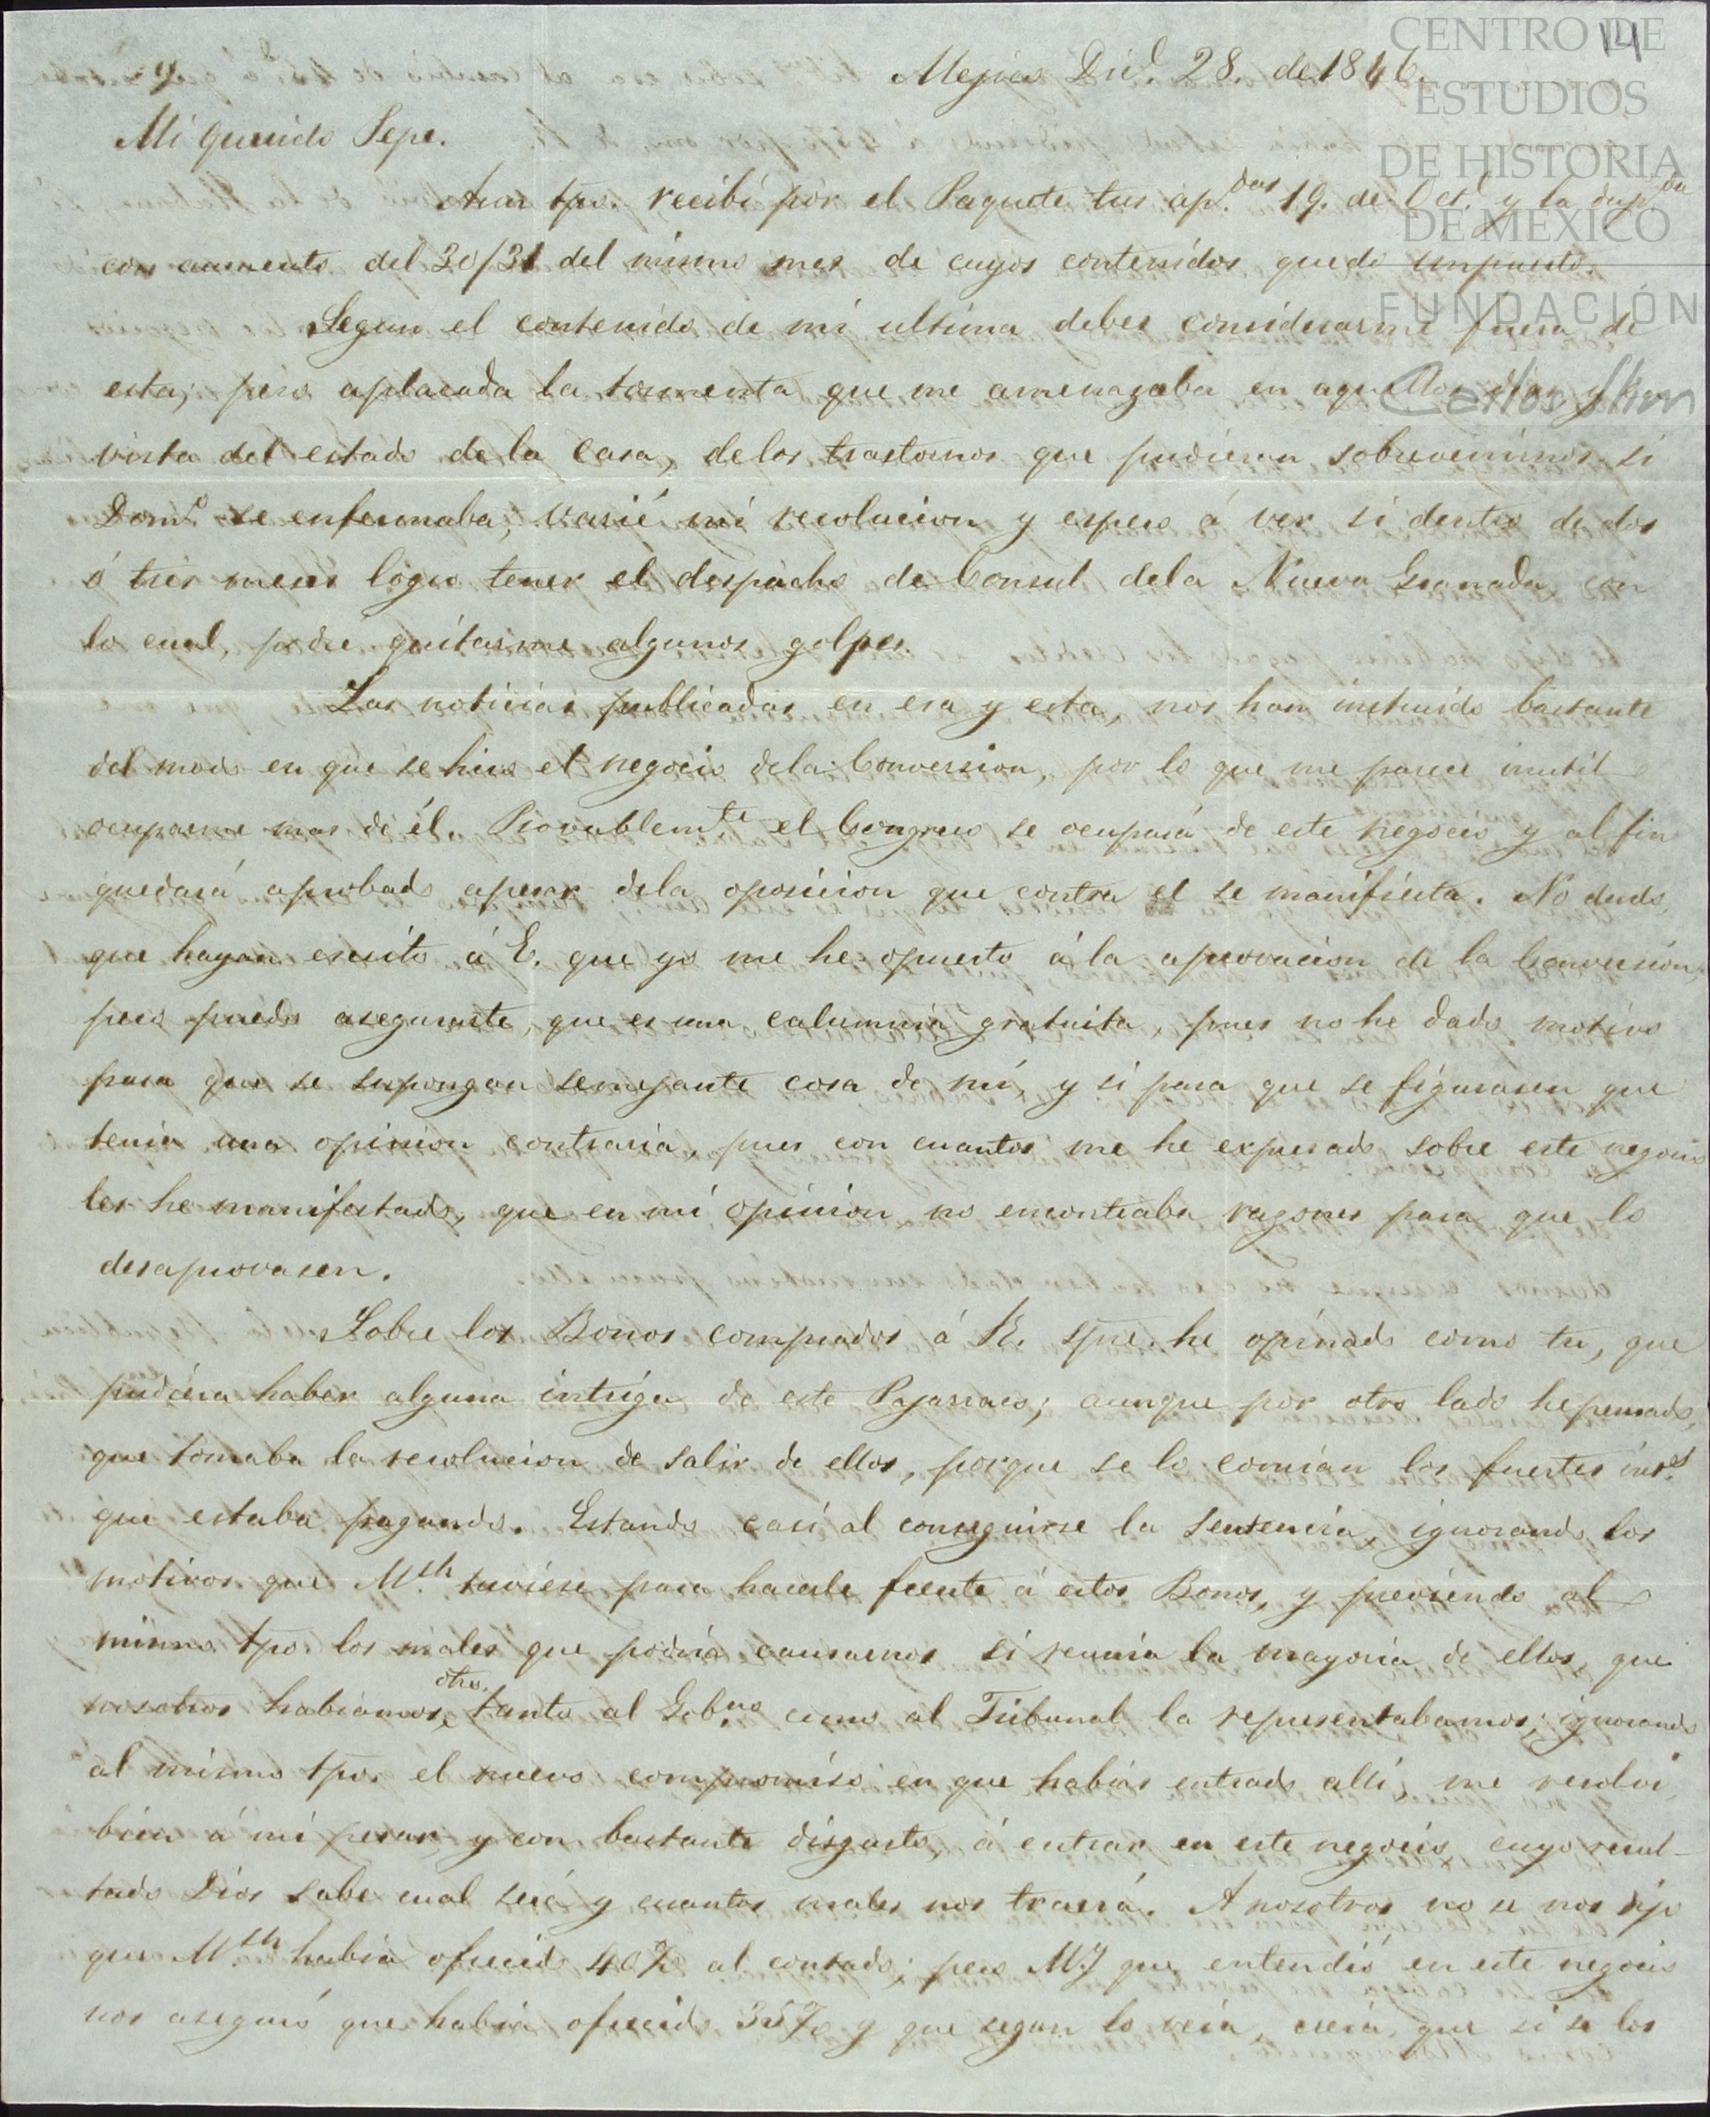 14
CENTRO DE
ESTUDIOS
DE HISTORIA
DE MÉXICO
FUNDACIÓN
Carlos Slim
Mejico Dic.e 28. de 1846.
Mi querido Pepe.
A un tpo. recibí por el Paquete tus ap.das 19. de Oct.e y la dup.da
con aumento del 30/31 del mismo mes de cuyos contenidos quedo impuesto.
Segun el contenido de mi ultima debes considerarme fuera de
esta; pero aplacada la tormenta que me amenazaba en aquellos dias y en
vista del estado de la casa, delos trastornos que pudieran sobrevenirnos si
Dom.o se enfermaba, varié mi resolucion y espero á ver si dentro de dos
ó tres meses logro tener el despacho de Consul dela Nueva Granada, con
lo cual, podre quitarme algunos golpes.
Las noticias publicadas en esa y esta, nos han instruido bastante
del modo en que se hizo el negocio dela Conversion, por lo que me parece inutil
ocuparme mas de él. Provablem.te el Congreso se ocupará de este negocio y al fin
quedará aprobado apesar dela oposicion que contra el se manifiesta. No dudo,
que hayan escrito á E. que yo me he opuesto á la aprovacion de la Conversion,
pero puedo asegurarte, que es una calumnia gratuita, pues no he dado motivo
para que se supongan semejante cosa de mi, y si para que se figurasen que
tenia una opinion contraria, pues con cuantos me he expresado sobre este negocio
les he manifestado, que en mi opinion no encontraba razones para que lo
desaprovasen.
Sobre los Bonos comprados á R. spre. he opinado como tu, que
pudiera haber alguna intriga de este Pajarraco; aunque por otro lado he pensado,
que tomaba la resolucion de salir de ellos, porque se lo comian los fuertes int.es
que estaba pagando. Estando casi al conseguirse la Sentencia, ignorando los
motivos que M.th tuviese para hacerle frente á estos Bonos, y previendo al
mismo tpo. los males que podria causarnos si reunia la mayoria de ellos, que
nosotros habiamos dho. tanto al Gob.no como al Tribunal la representabamos; ignorando
al mismo tpo. el nuevo compromiso en que habias entrado alli, me resolvi
bien á mi pesar y con bastante disgusto, á entrar en este negocio cuyo resul-
tado Dios sabe cual será y cuantos males nos traerá. A nosotros no se nos dijo
que M.th habia ofrecido 40% al contado; pero M.J que entendió en este negocio
nos aseguró que habia ofrecido 35% y que segun lo veía, creía que si se los